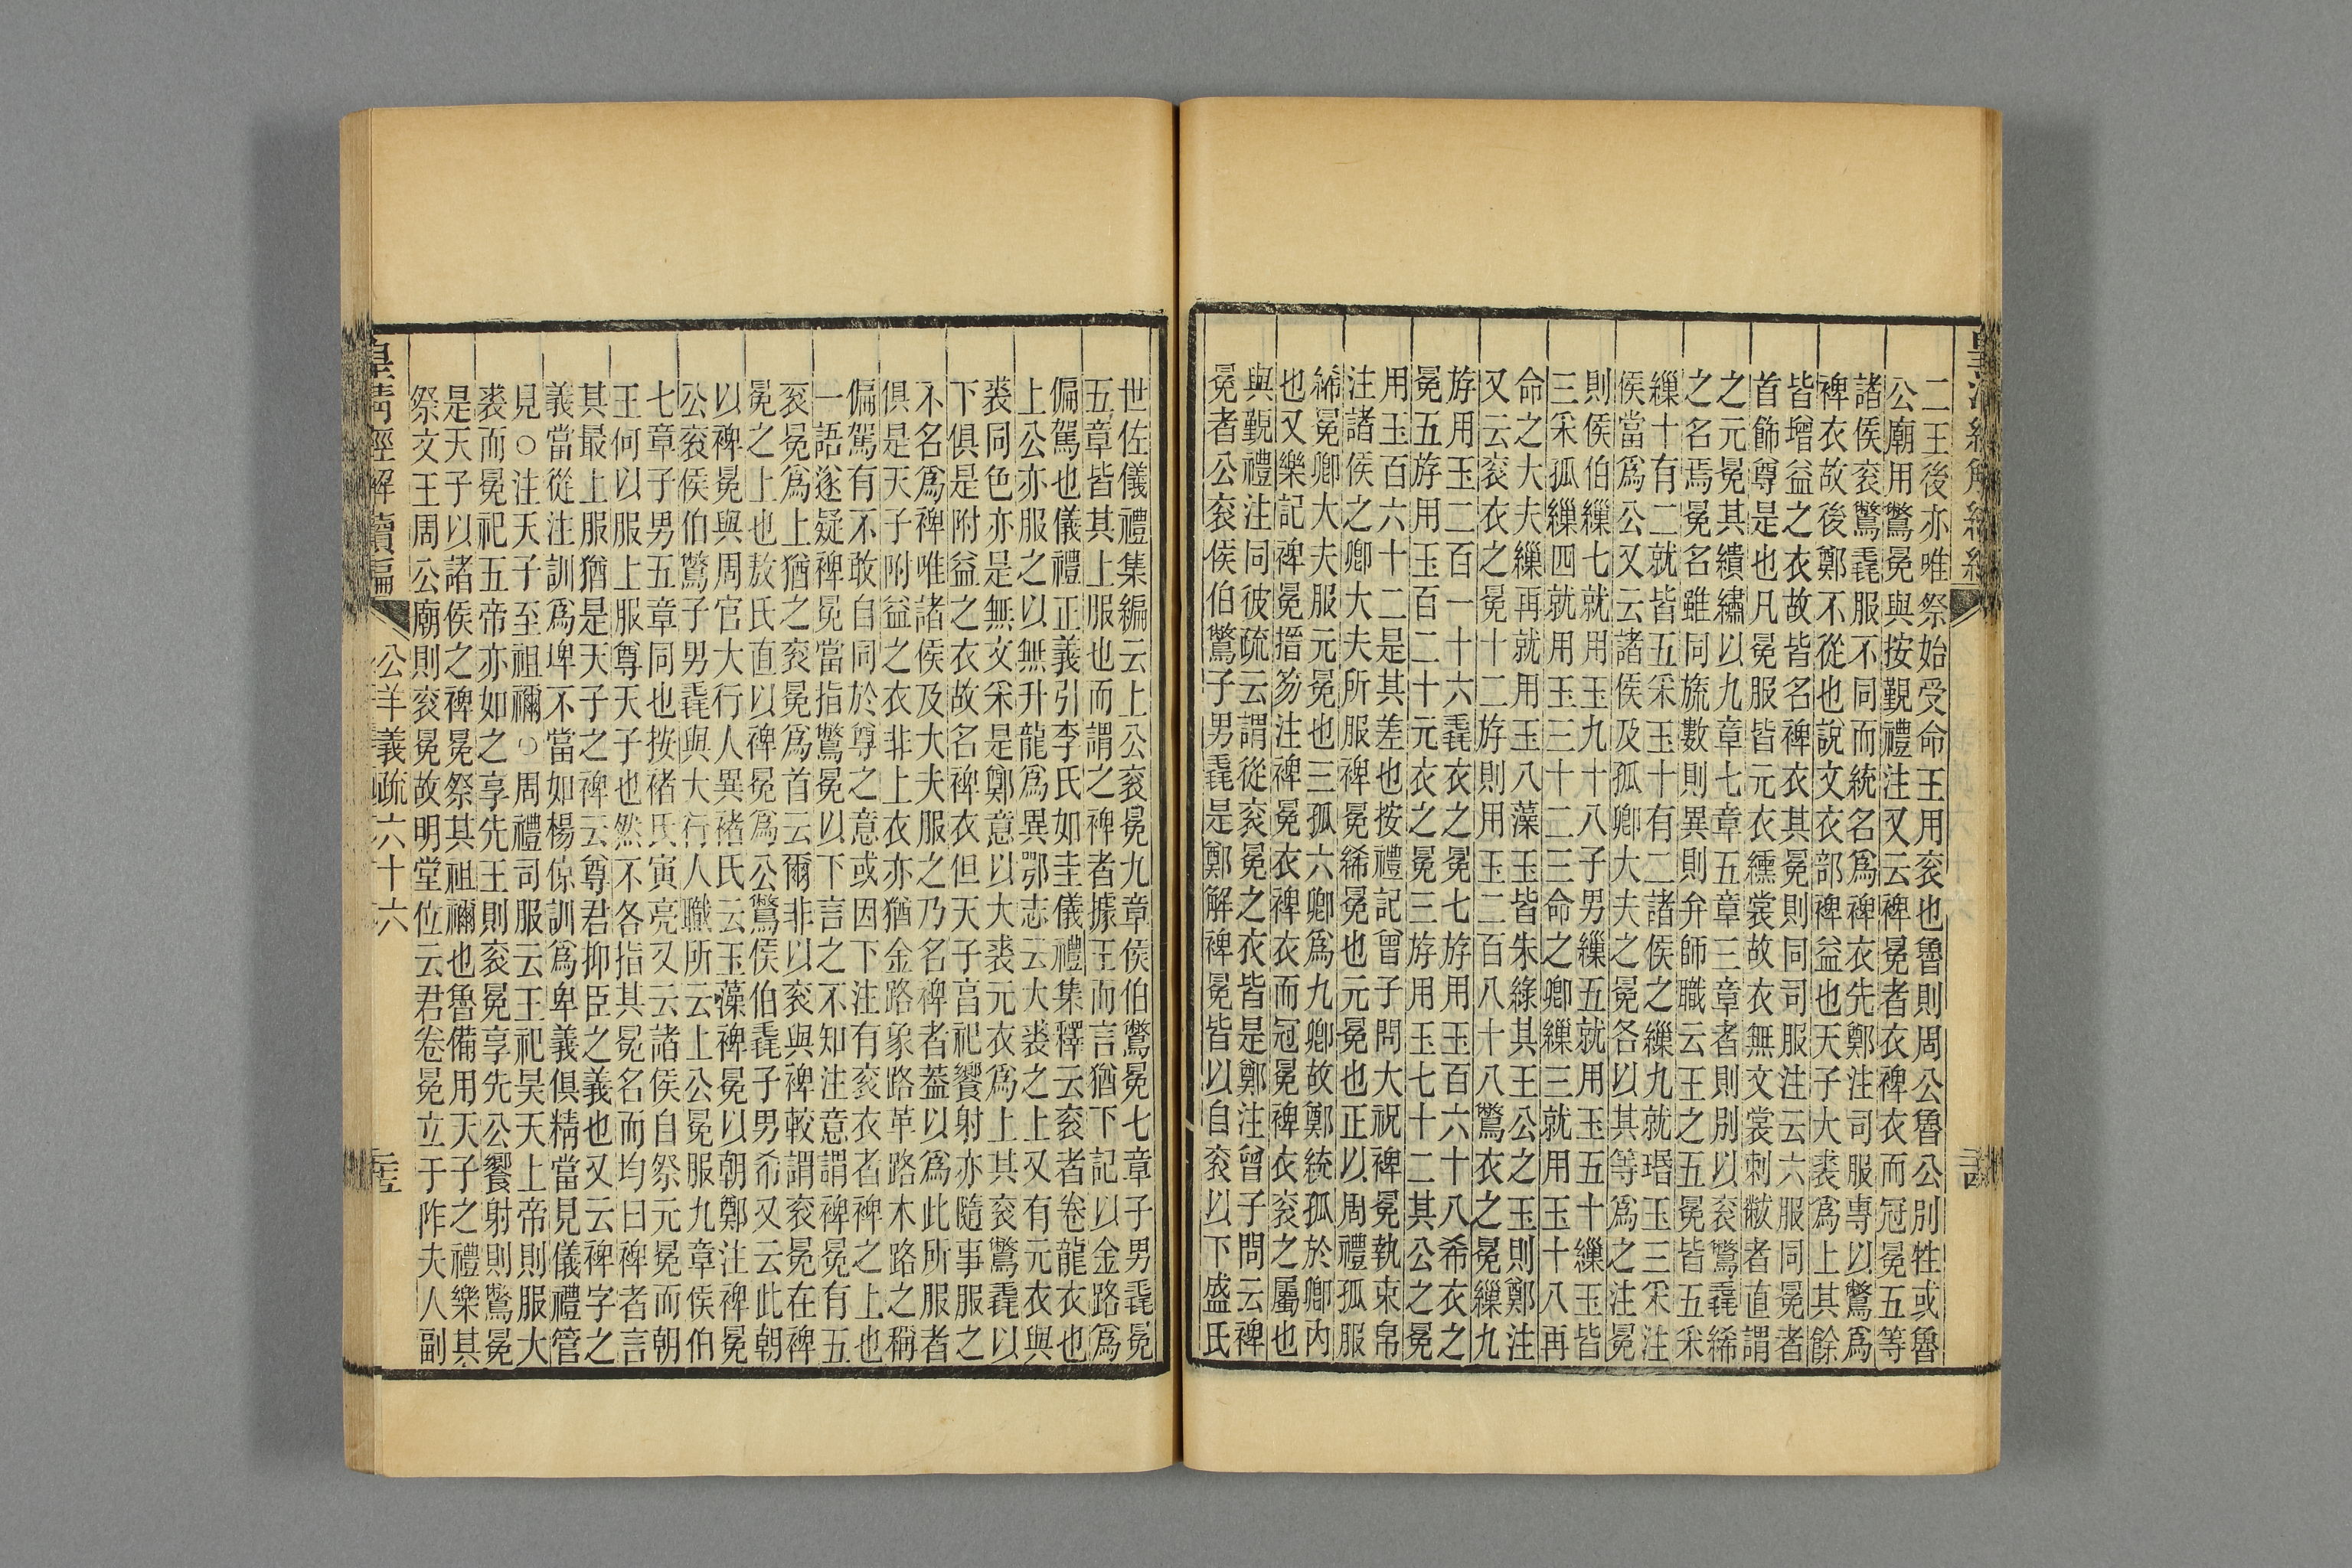 二王後亦唯祭始受命王用袞也魯則周公魯公別牲或魯
公廟用鷩冕與按覲禮注又云裨冕者衣裨衣而冠冕五等
諸侯袞鷩毳服不同而統名爲裨衣先鄭注司服專以鷩爲
裨衣故後鄭不從也說文衣部裨益也天子大裘爲上其餘
皆增益之衣故皆名裨衣其冕則同司服注云六服同冕者
首飾尊是也凡冕服皆元衣纁裳故衣無文裳刺黻者直謂
之元冕其繢繡以九章七章五章三章者則別以袞鷩毳絺
之名焉冕名雖同旒數則異則弁師職云王之五冕皆五采
繅十有二就皆五采玉十有二諸侯之繅九就瑉玉三采注
侯當爲公又云諸侯及孤卿大夫之冕各以其等爲之注冕
則侯伯繅七就用玉九十八子男繅五就用玉五十繅玉皆
三采孤繅四就用玉三十二三命之卿繅三就用玉十八再
命之大夫繅再就用玉八藻玉皆朱綠其王公之玉則鄭注
又云袞衣之冕十二斿則用玉二百八十八鷩衣之冕繅九
斿用玉二百一十六毳衣之冕七斿用玉百六十八希衣之
冕五斿用玉百二十元衣之冕三斿用玉七十二其公之冕
用玉百六十二是其差也按禮記曾子問大祝裨冕執束帛
注諸侯之卿大夫所服裨冕絺冕也元冕也正以周禮孤服
絺冕卿大夫服元冕也三孤六卿爲九卿故鄭統孤於卿內
也又樂記裨冕搢笏注裨冕衣裨衣而冠冕裨衣袞之屬也
與覲禮注同彼疏云謂從袞冕之衣皆是鄭注曾子問云裨
冕者公袞侯伯鷩子男毳是鄭解裨冕皆以自袞以下盛氏
世佐儀禮集編云上公袞冕九章侯伯鷩冕七章子男毳冕
五章皆其上服也而謂之裨者據王而言猶下記以金路爲
偏駕也儀禮正義引李氏如圭儀禮集釋云袞者卷龍衣也
上公亦服之以無升龍爲異鄂志云大裘之上又有元衣與
裘同色亦是無文采是鄭意以大裘元衣爲上其袞鷩毳以
下俱是附益之衣故名裨衣但天子亯祀饗射亦隨事服之
不名爲裨唯諸侯及大夫服之乃名裨者葢以爲此所服者
俱是天子附益之衣非上衣亦猶金路象路革路木路之稱
偏駕有不敢自同於尊之意或因下注有袞衣者裨之上也
一語遂疑裨冕當指鷩冕以下言之不知注意謂裨冕有五
袞冕爲上猶之袞冕爲首云爾非以袞與裨較謂袞冕在裨
冕之上也敖氏直以裨冕爲公鷩侯伯毳子男希又云此朝
以裨冕與周官大行人異褚氏云玉藻裨冕以朝鄭注裨冕
公袞侯伯鷩子男毳與大行人職所云上公冕服九章侯伯
七章子男五章同也按褚氏寅亮又云諸侯自祭元冕而朝
王何以服上服尊天子也然不各指其冕名而均曰裨者言
其最上服猶是天子之裨云尊君抑臣之義也又云裨字之
義當從注訓爲埤不當如楊倞訓爲卑義俱精當見儀禮管
見○注天子至祖禰○周禮司服云王祀昊天上帝則服大
裘而冕祀五帝亦如之享先王則袞冕享先公饗射則鷩冕
是天子以諸侯之裨冕祭其祖禰也魯備用天子之禮樂其
祭文王周公廟則袞冕故明堂位云君卷冕立于阼夫人副
皇清經解續編
公羊義疏六十六